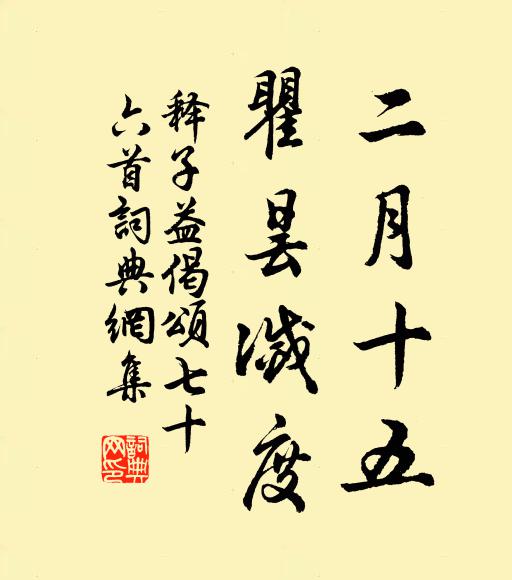 二月十五
瞿昙滅度
释子益偈頌七十
六首詞典網集
詞典网印